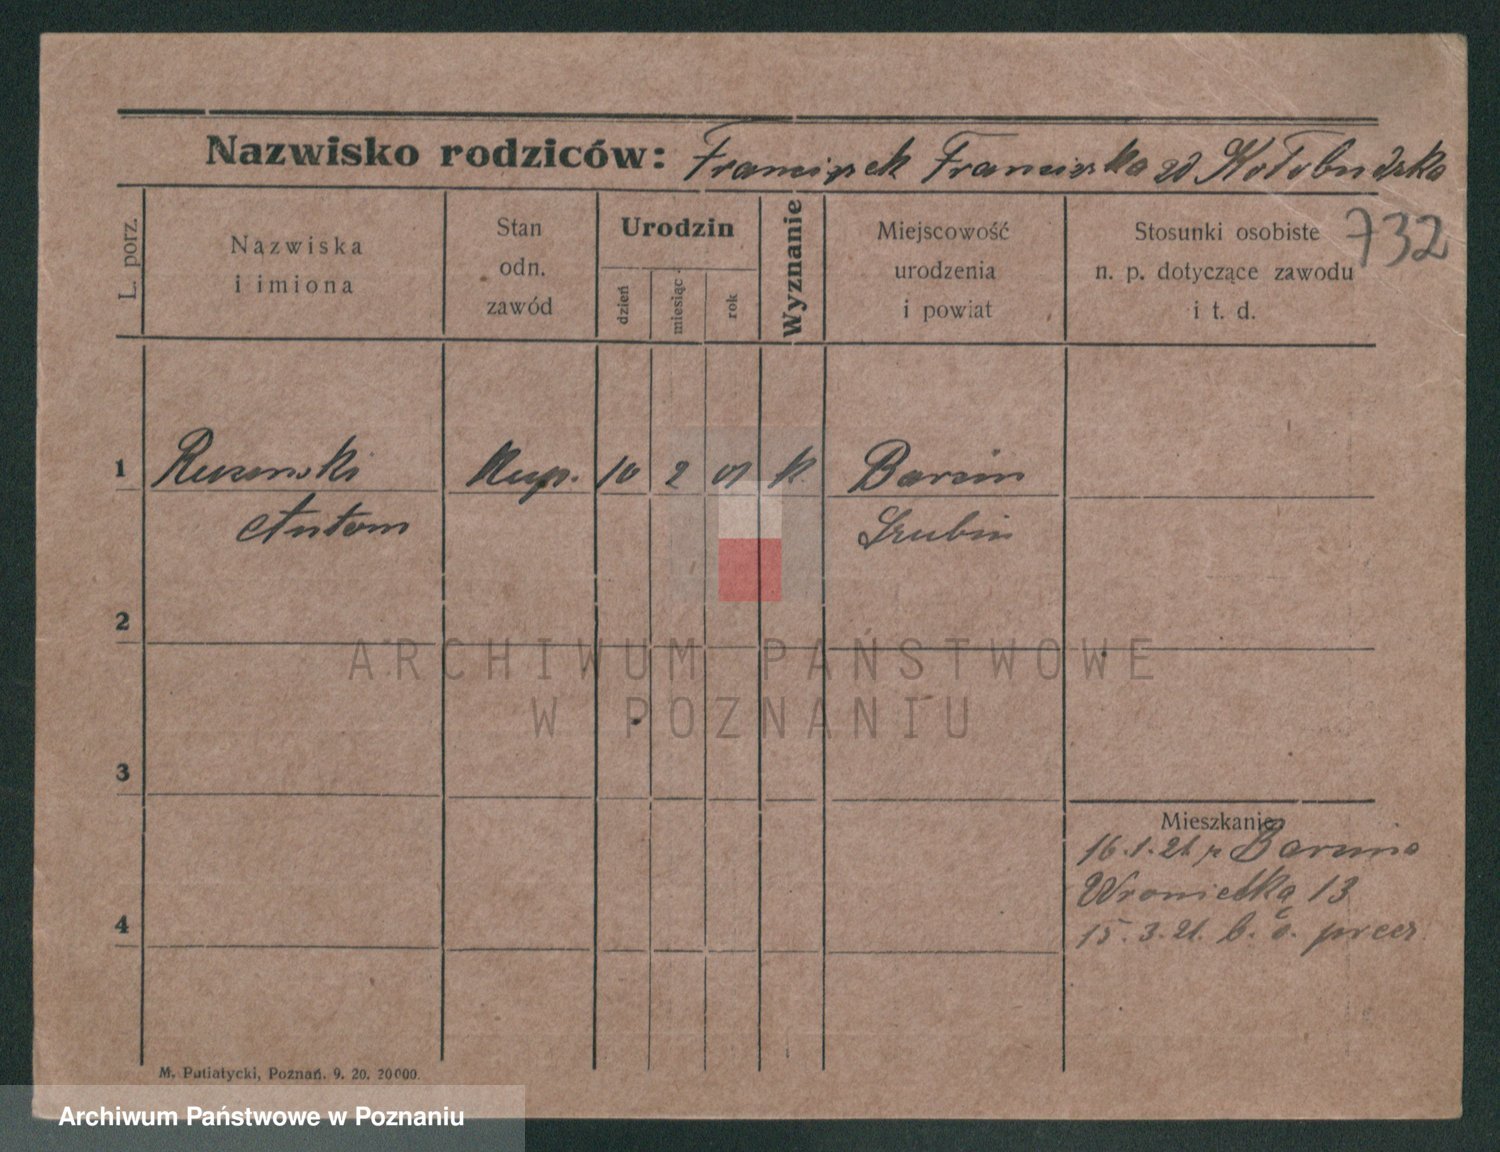 Nazwisko rodziców: Franciszek Franciszka zd Kołybudzka
732
L. porz.
Nazwiska
i imiona
Stan
odn.
zawód
Urodzin
dzień
miesiąc
rok
Wyznanie
Miejscowość
urodzenia
i powiat
Stosunki osobiste
n. p. dotyczące zawodu
i t. d.
1 Kup. 10 2 01 k. Barcin
Antoni Szubin
2
3
4
Mieszkanie
16.1.21. z Barcina
Wroniecka 13
15.3.21.
M. Putiatycki, Poznań. 9. 20. 20000.
ARCHIWUM PAŃSTWOWE
W POZNANIU
Archiwum Państwowe w Poznaniu